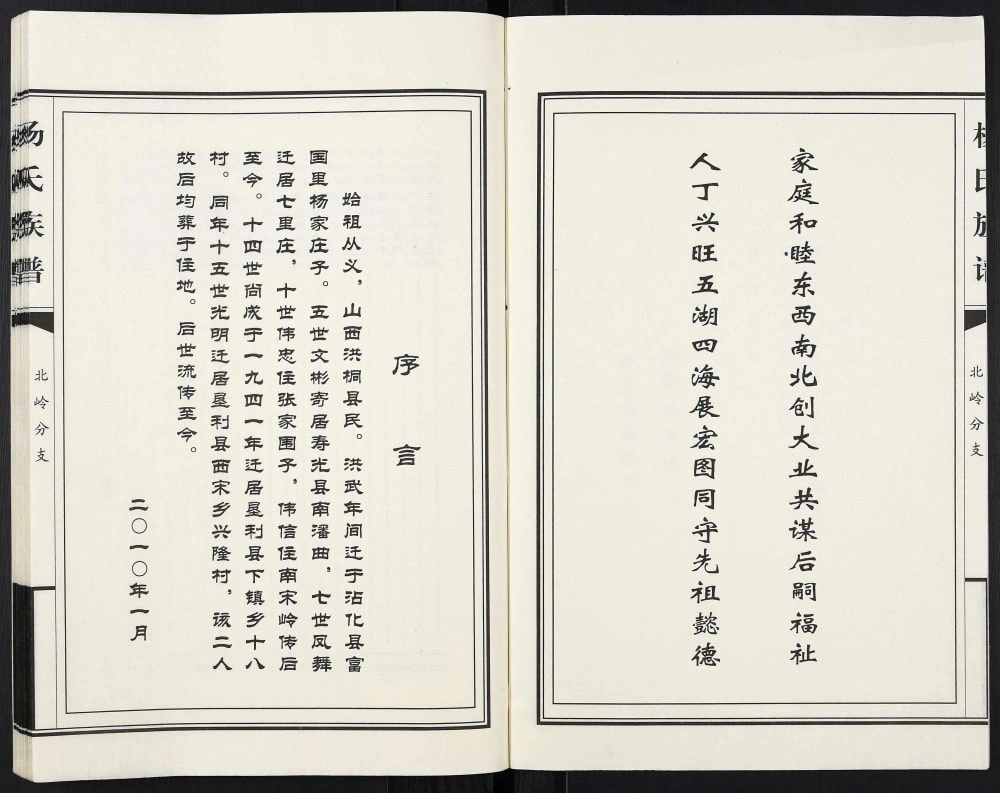 杨氏族谱
北岭分支
家庭和睦东西南北创大业共谋后嗣福祉
人丁兴旺五湖四海展宏图同守先祖懿德
序言
始祖从义，山西洪桐县民。洪武年间迁于沾化县富
国里杨家庄子。五世文彬寄居寿光县南潘曲，七世凤舞
迁居七里庄，十世伟忠住张家围子，伟信住南宋岭传后
至今。十四世尚成于一九四一年迁居垦利县下镇乡十八
村。同年十五世光明迁居垦利县西宋乡兴隆村，该二人
故后均葬于住地。后世流传至今。
二〇一〇年一月
杨氏族谱
北岭分支